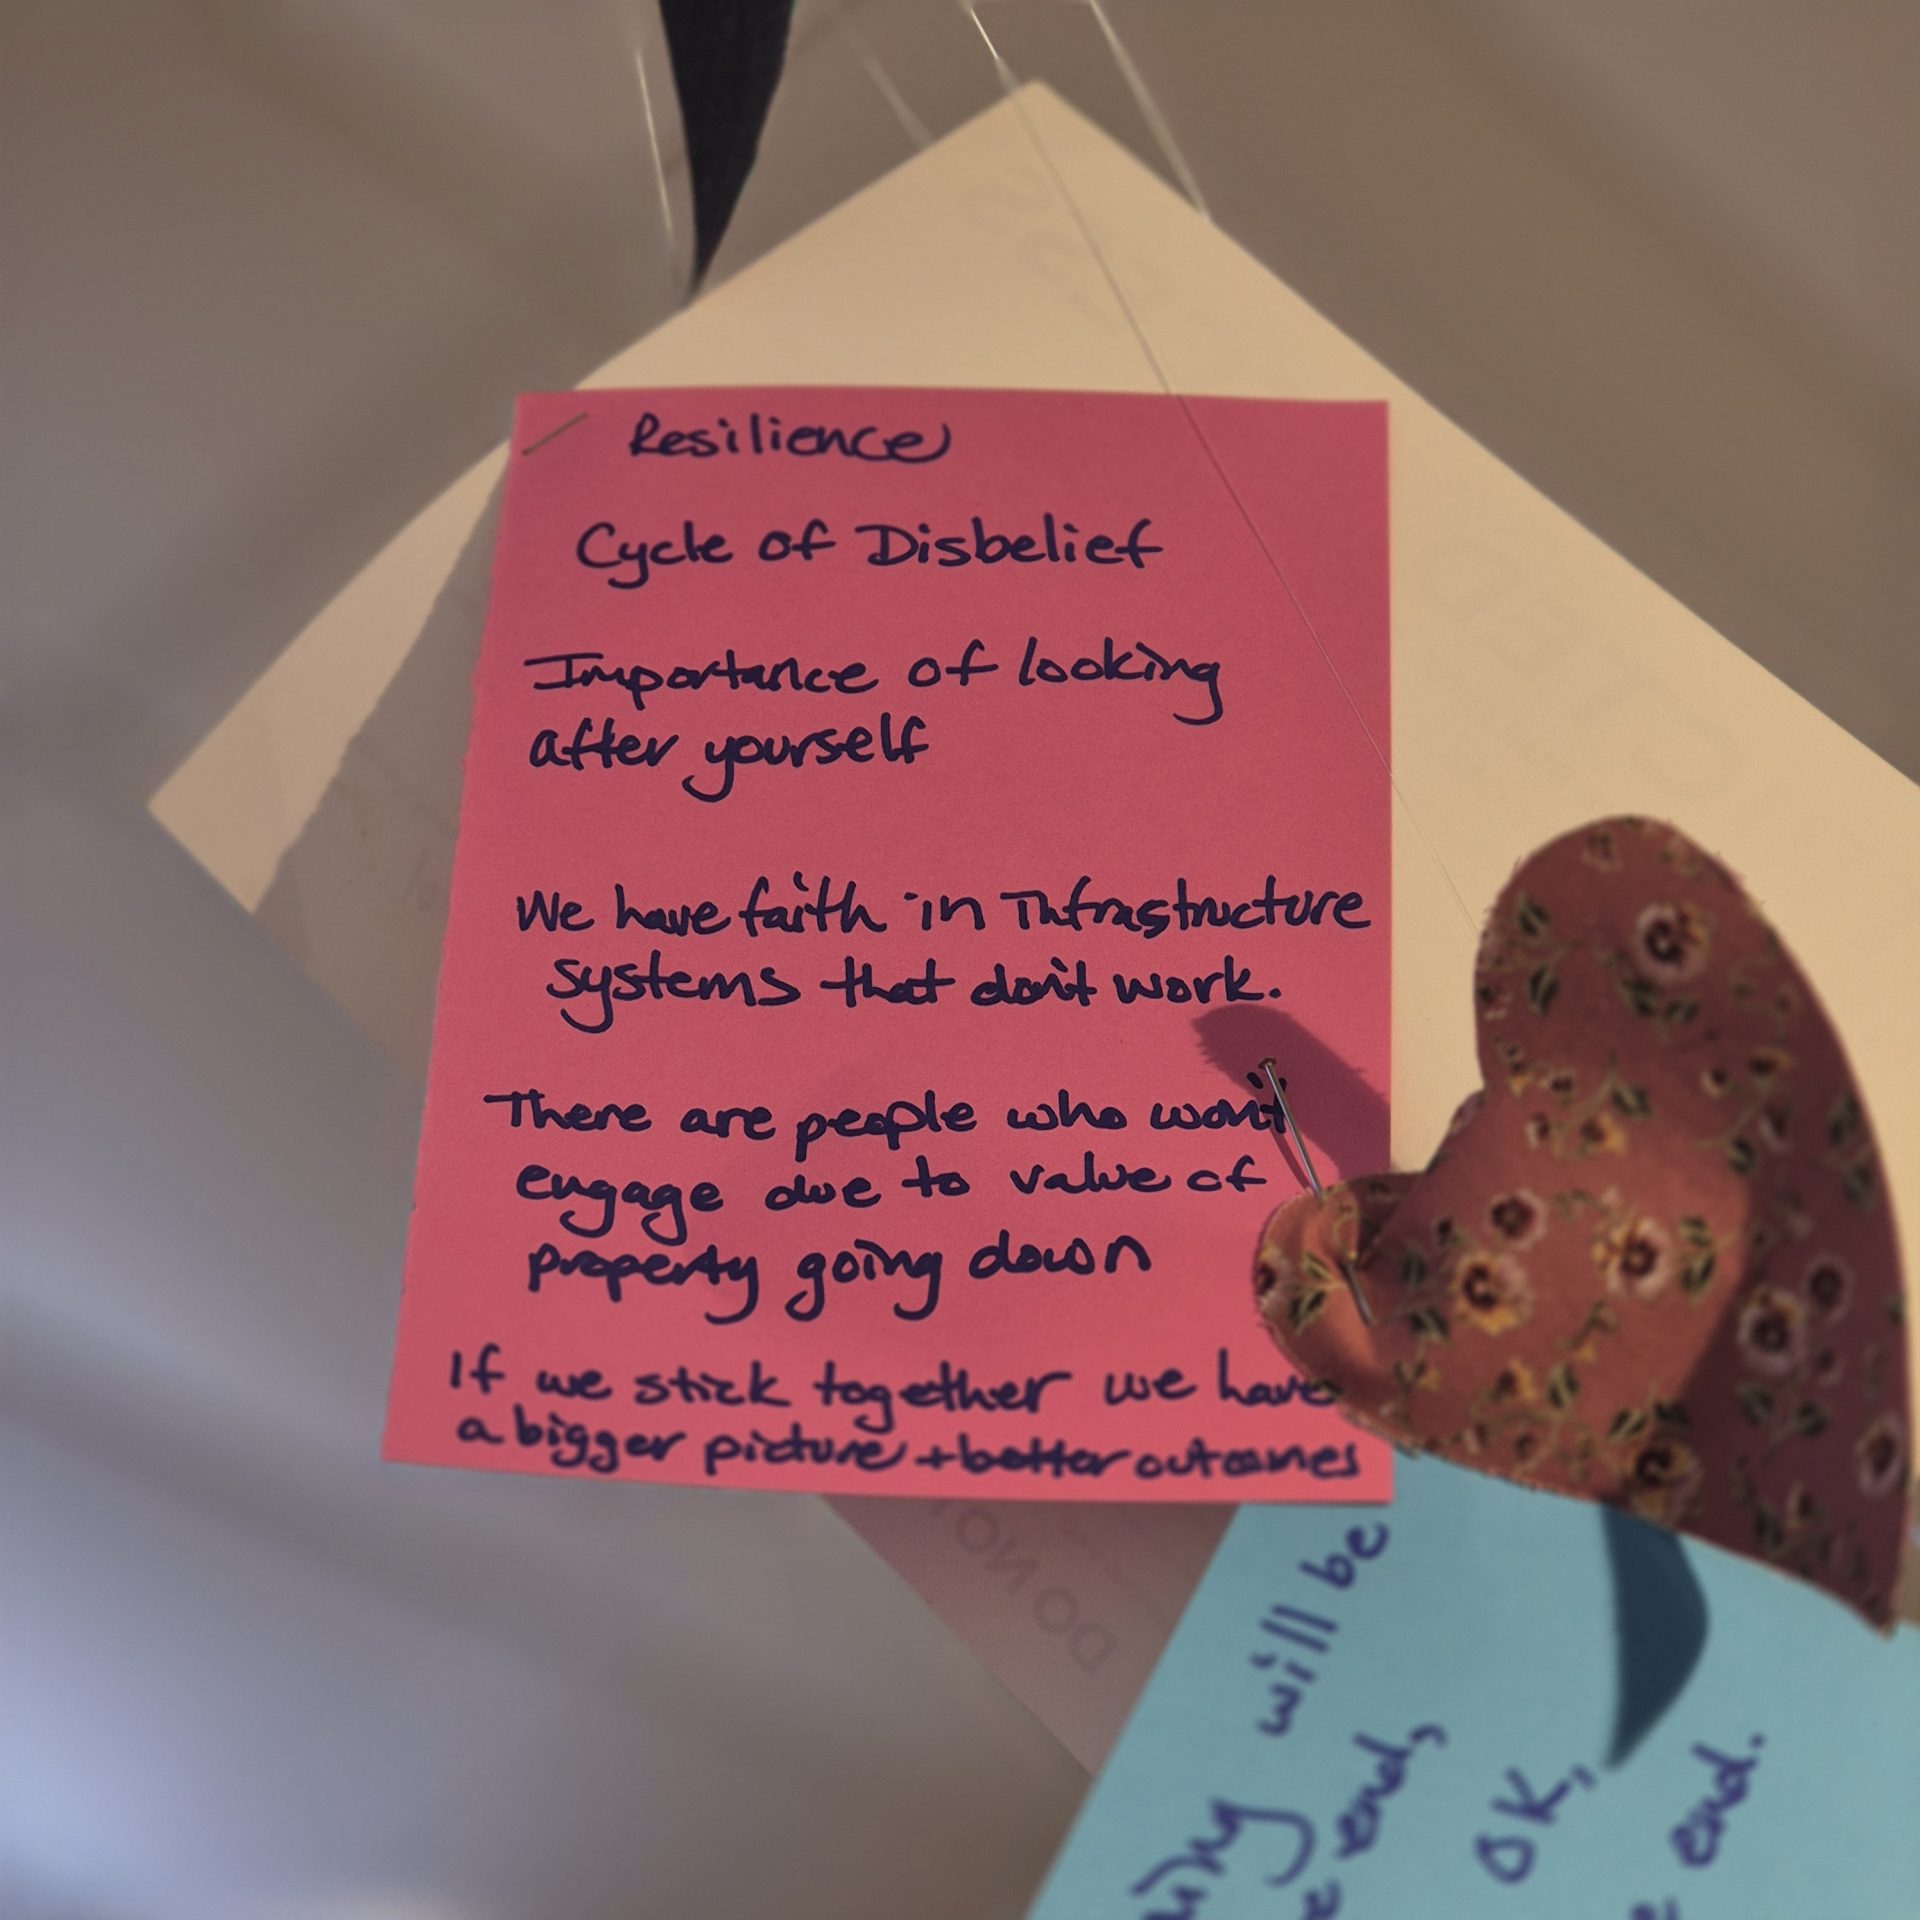 Resilience
Cycle of Disbelief
Importance of looking
after yourself
We have faith in Infrastructure
systems that don't work.
There are people who won't
engage due to value of
property going down
If we stick together we have
a bigger picture + better outcomes
will be
end,
OK,
end.
DO NOT